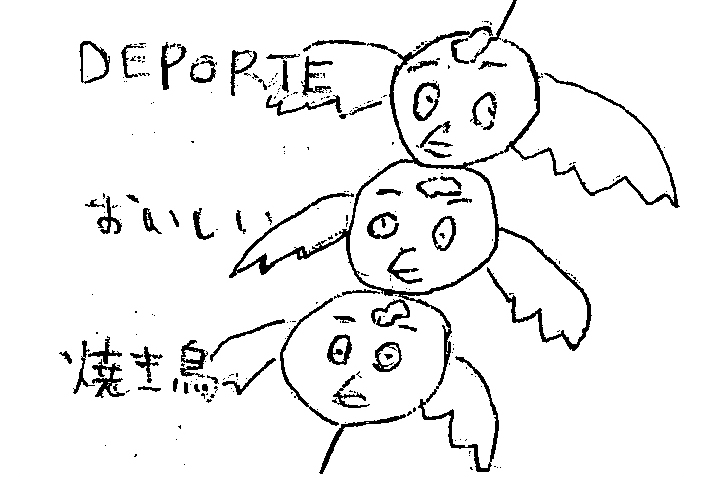 DEPORTE
おいしい
焼き鳥